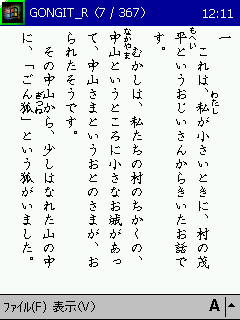 GONGIT_R (7 / 367) 12:11
一
これは、私が小さいときに、村の茂
わたし
平というおじいさんからきいたお話で
もへい
す。
むかしは、私たちの村のちかくの、
中山というところに小さなお城があっ
なかやま
て、中山さまというおとのさまが、お
られたそうです。
その中山から、少しはなれた山の中
に、「ごん狐」という狐がいました。
ぎつね
ファイル(F) 表示(V) A